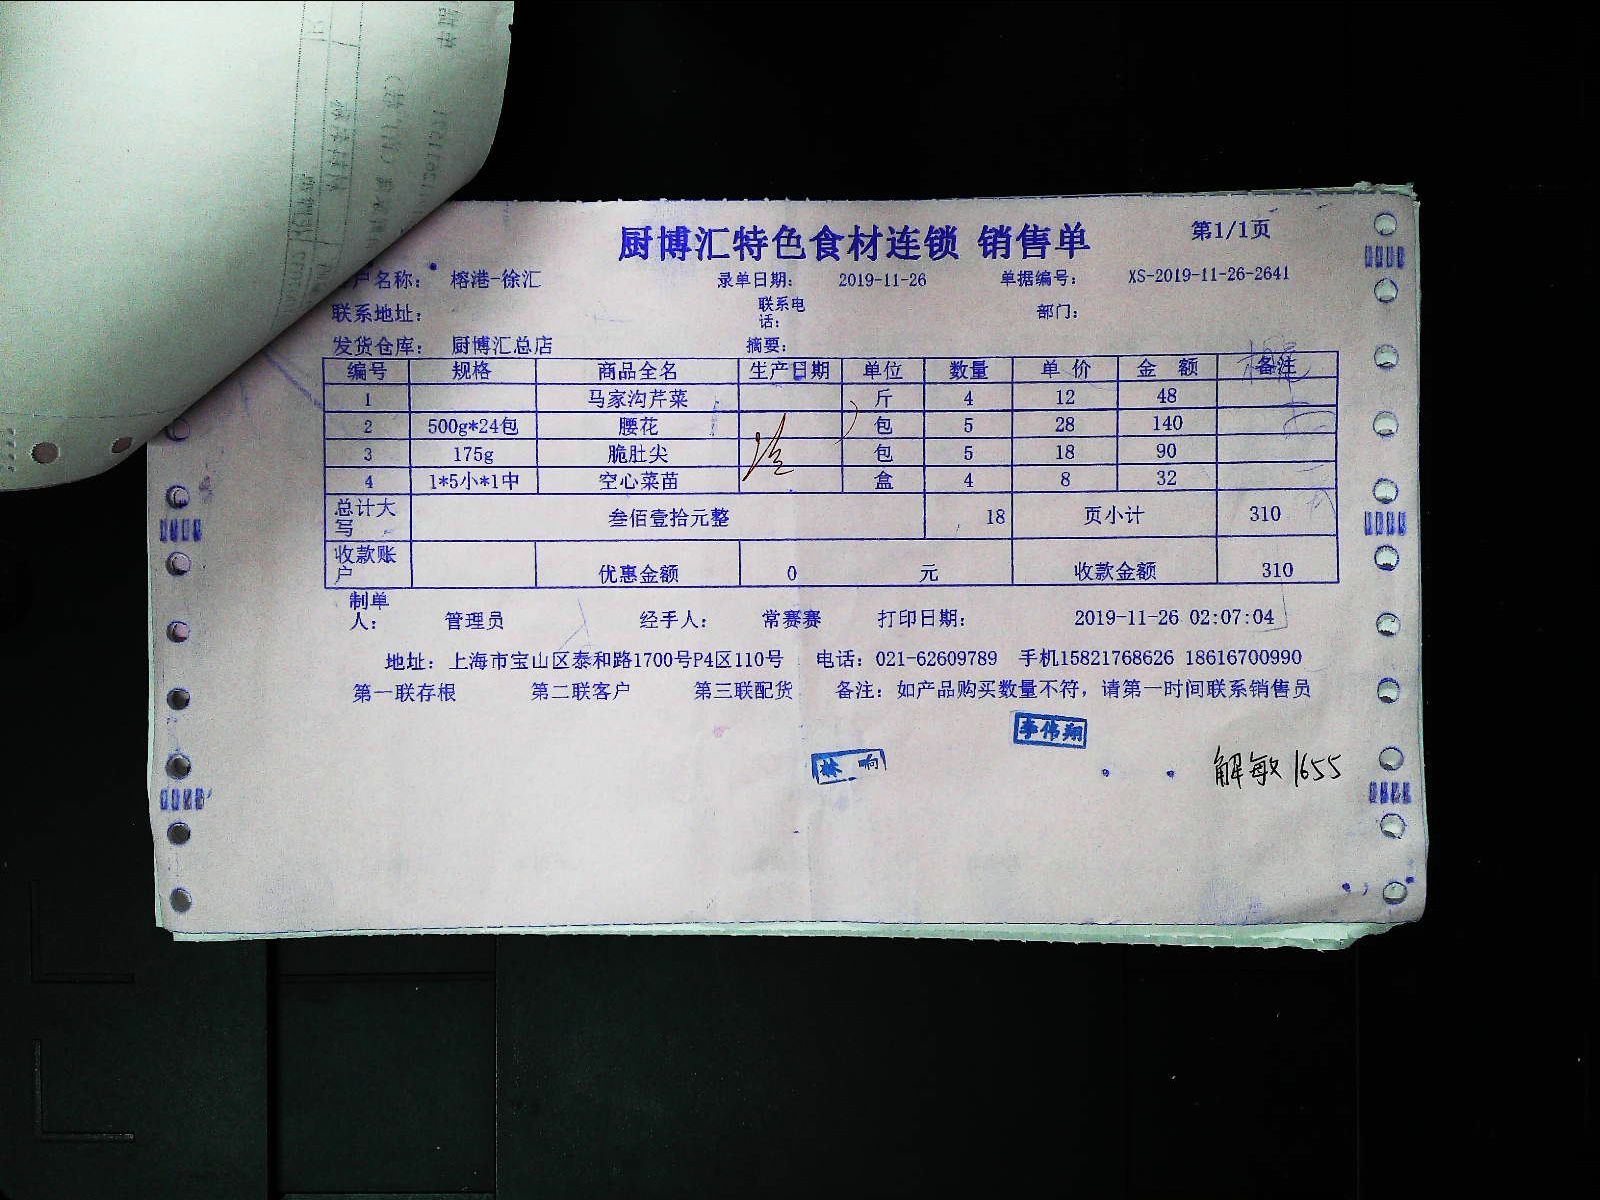 厨博汇特色食材连锁 销售单 第1/1页
户名称： 榕港-徐汇 录单日期： 2019-11-26 单据编号： XS-2019-11-26-2641
联系地址： 联系电话： 部门：
发货仓库： 厨博汇总店 摘要：
编号 规格 商品全名 生产日期 单位 数量 单 价 金 额 备注
1 马家沟芹菜 斤 4 12 48
2 500g*24包 腰花 包 5 28 140
3 175g 脆肚尖 包 5 18 90
4 1*5小*1中 空心菜苗 盒 4 8 32
总计大写 叁佰壹拾元整 18 页小计 310
收款账户 优惠金额 0 元 收款金额 310
制单人： 管理员 经手人： 常赛赛 打印日期： 2019-11-26 02:07:04
地址：上海市宝山区泰和路1700号P4区110号 电话：021-62609789 手机15821768626 18616700990
第一联存根 第二联客户 第三联配货 备注：如产品购买数量不符，请第一时间联系销售员
李伟翔
林 响
解敏 1655